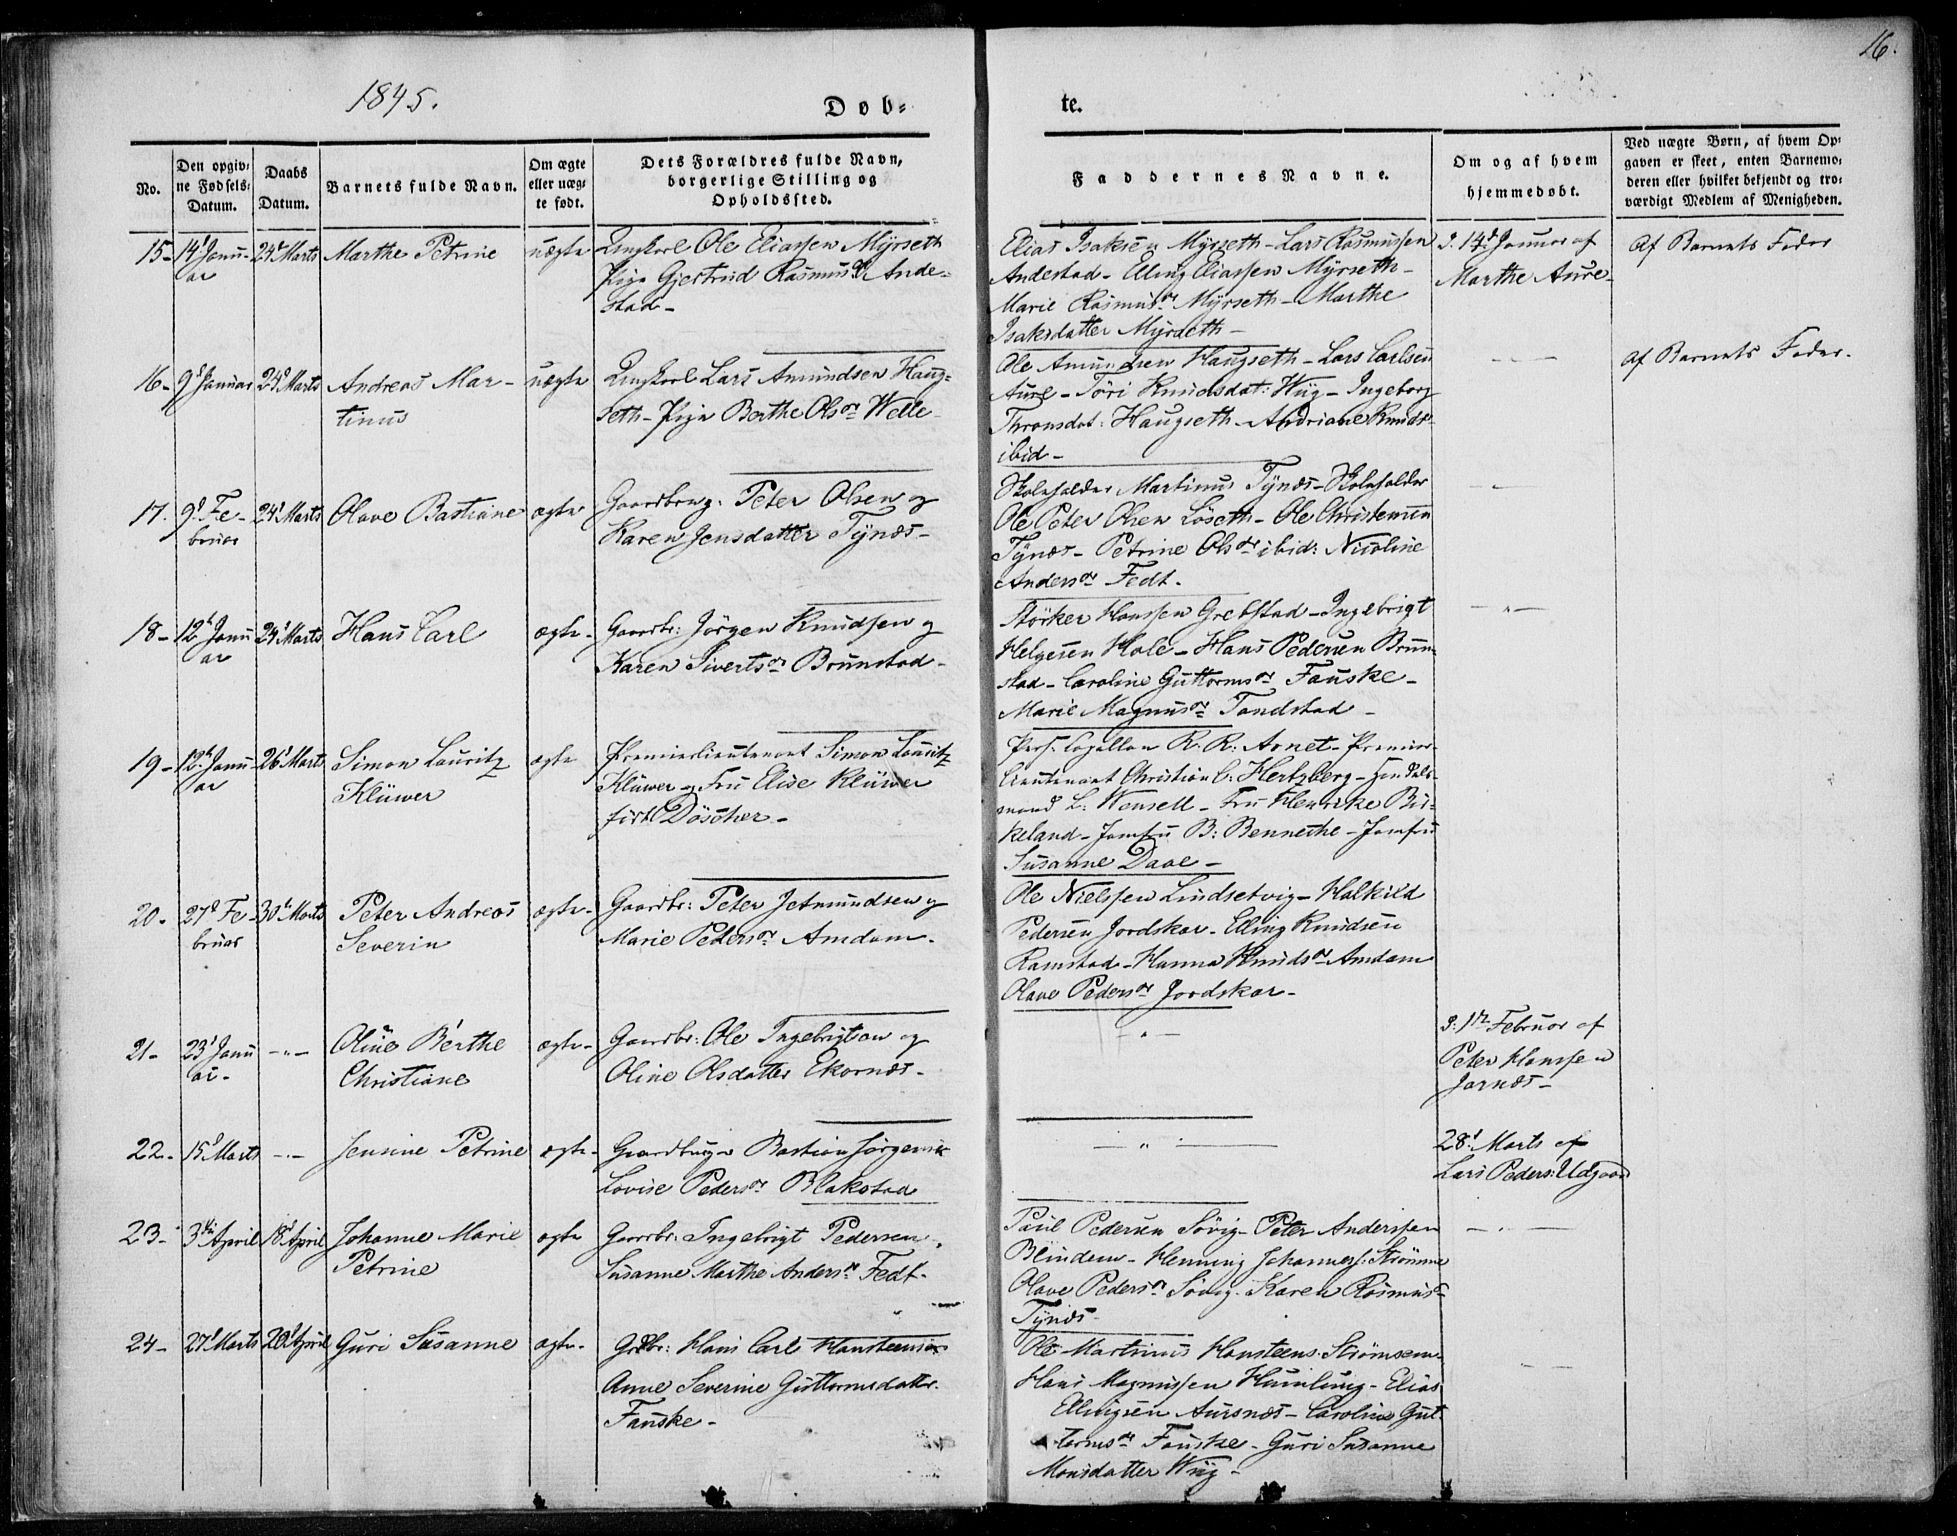 16.
1845.
Døb-
te.
No.
Den opgiv-
ne Fødsels-
Datum.
Daabs
Datum.
Barnets fulde Navn.
Om ægte
eller uæg-
te født.
Dets Forældres fulde Navn,
borgerlige Stilling og
Opholdssted.
Faddernes Navne.
Om og af hvem
hjemmedøbt.
Ved uægte Børn, af hvem Op-
gaven er skeet, enten Barnemo-
deren eller hvilket bekjendt og tro-
værdigt Medlem af Menigheden.
15- 14d Janu-
ar
24d Marts
Marthe Petrine
uægte
Ungkarl Ole Eliassen Myrseth
Pige Gjertrud Rasmusdr Ande-
stad-
Elias Isaksen Myrseth- Lars Rasmussen
Andestad- Elling Eliassen Myrseth-
Marie Rasmusdr Myrseth- Marthe
Isaksdatter Myrseth-
14d Januar af
Marthe Aure-
Af Barnets Fader
16- 9d Januar
24d Marts
Andreas Mar-
tinus
uægte
Ungkarl Lars Amundsen Haug-
seth- Pige Berthe Olsdr Welle-
Ole Amundsen Haugseth- Lars Carlsen
Aure- Töri Knudsdat: Wiig- Ingeborg
Thronsdat: Haugseth- Andriane Knuds-
ibid-
Af Barnets Fader.
17. 9d Fe-
bruar
24d Marts
Olave Bastiane
ægte
Gaardbrug: Peter Olsen og
Karen Jensdatter Tynes-
Skoleholder Martinus Tynes- Skoleholder
Ole Peter Olsen Löseth- Ole Christensen
Tynes- Petrine Olsdr ibid: Nicoline
Andersdr Fedt.
18- 12d Janu
ar
24d Marts
Hans Carl
ægte-
Gaardbr: Jörgen Knudsen og
Karen Sivertsdr Brunstad-
Störker Hanssen Grebstad- Ingebrigt
Helgesen Hole- Hans Pedersen Brun-
stad- Caroline Guttormsdr Fauske-
Marie Magnusdr Tandstad-
19- 12d Janu-
ar
26d Marts
Simon Lauritz
Klüwer
ægte
Premierlieutenant Simon Lauritz
Klüwer og Fru Elise Klüwer
född Döscher-
Pers. Capellan R. R: Arnet- Premier-
lieutenant Christian C: Hertzberg-
L: Wensell- Fru Henrike Bir-
keland- Jomfru B: Bennethe- Jomfru
Susanne Daae-
20- 27d Fe-
bruar
30d Marts
Peter Andreas
Severin
ægte-
Gaardbr: Peter Jetmundsen og
Marie Pedersdr Amdam.
Ole Nielssen Lindsetvig- Halkild
Pedersen Jordskar- Elling Knudsen
Ramstad- Hanna Knudsdr Amdam
Olave Pedersdr Jordskar-
21- 23d Janu
ar-
-"-
Oline Berthe
Christiane
ægte-
Gaardbr: Ole Ingebrigtsen og
Oline Olsdatter Ekornes-
-"-
1ste Februar af
Peter Hanssen
Jarnes-
22- 15d Marts
-"-
Jensine Petrine
ægte-
Gaardbruger Bastian Jörgensen
Lovise Pedersdr Blakstad
-"-
28d Marts af
Lars Peders: Udgaard
23- 3die April
18d April
Johanne Marie
Petrine
ægte
Gaardbr: Ingebrigt Pedersen
Susanne Marthe Andersdr Fedt-
Paul Pedersen Sövig- Peter Anderssen
Blindem- Henning Johanness: Strömme
Olave Pedersdr Sövig- Karen Rasmus-
Tynes-
24- 27d Marts
20d April
Guri Susanne
ægte-
Grdbr: Hans Carl Hansteensen
Anne Severine Guttormsdatter
Fauske-
Ole Martinus Hansteens: Strömsem-
Hans Magnussen Humlung- Elias
Ellingsen Aursnes- Caroline Gut-
tormsdr Fauske- Guri Susanne
Monsdatter Wiig-